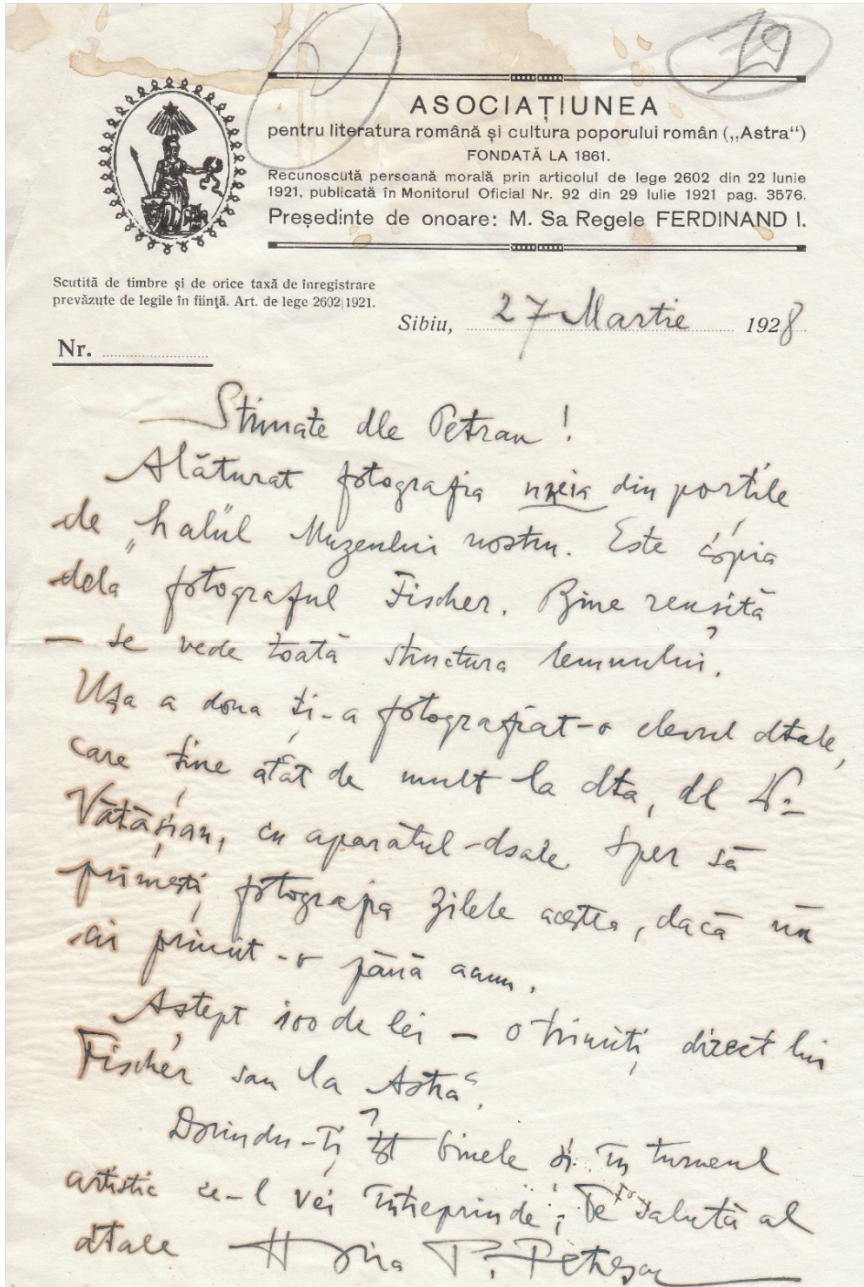 19
ASOCIAȚIUNEA
pentru literatura română și cultura poporului român („Astra“)
FONDATĂ LA 1861.
Recunoscută persoană morală prin articolul de lege 2602 din 22 Iunie
1921, publicată în Monitorul Oficial Nr. 92 din 29 Iulie 1921 pag. 3576.
Președinte de onoare: M. Sa Regele FERDINAND I.
Scutită de timbre și de orice taxă de înregistrare
prevăzute de legile în ființă. Art. de lege 2602/1921.
Sibiu, 27 Martie 1928
Nr.
Stimate dle Petran!
Alăturat fotografia uneia din porțile
de „halul Muzeului nostru. Este copia
dela fotograful Fischer. Bine reușită
– se vede toată structura lemnului.
Ușa a doua ți-a fotografiat-o elevul dtale,
care ține atât de mult la dta, dl
Vătășian, cu aparatul dsale. Sper să
primești fotografia zilele acestea, dacă nu
ai primit-o până acum.
Aștept 100 de lei – o trimiți direct lui
Fischer sau la „Astra“.
Dorindu-ți tot binele și în turneul
artistic ce-l vei întreprinde, Te salută al
dtale Horia P. Petrescu